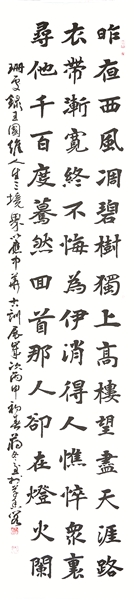 昨夜西風凋碧樹獨上高樓望盡天涯路
衣帶漸寬終不悔為伊消得人憔悴眾裏
尋他千百度驀然回首那人卻在燈火闌
珊處錄王國維人生三境界以應中華古訓展歲次丙申初春蔣